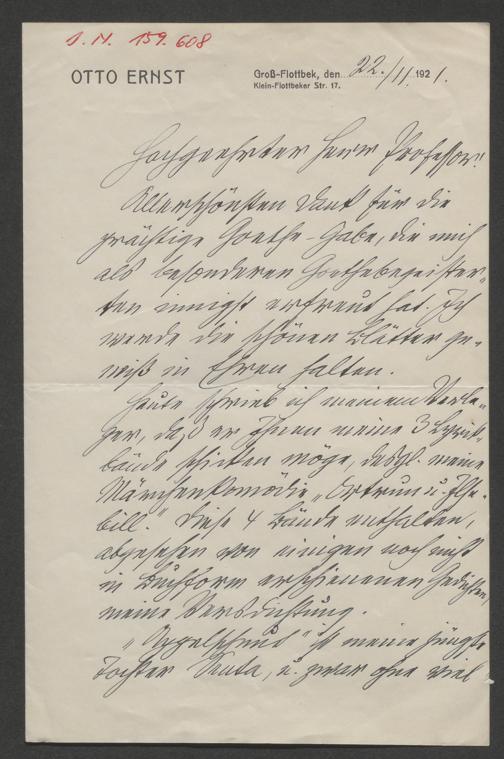 J. N. 159.608
OTTO ERNST
Groß-Flottbek, den 22./11. 1921.
Klein-Flottbeker Str. 17.
Hochgeehrter Herr Professor!
Allerschönsten Dank für die
prächtige Goethe-Gabe, die mich
als besonderen Goethebegeister-
ten innigst erfreut hat. Ich
werde die schönen Blätter ge-
wiß in Ehren halten.
Heute schrieb ich meinem Verle-
ger, daß er Ihnen meine 3 Lyrik-
bände schicken möge, desgl. meine
Märchenkomödie „Ortrun u. Ilse-
bill.“ Diese 4 Bände enthalten,
abgesehen von einigen noch nicht
in Buchform erschienenen Gedichten,
meine Versdichtung.
„Appelschnut“ ist meine jüngste
Tochter Senta, u. zwar ohne viel